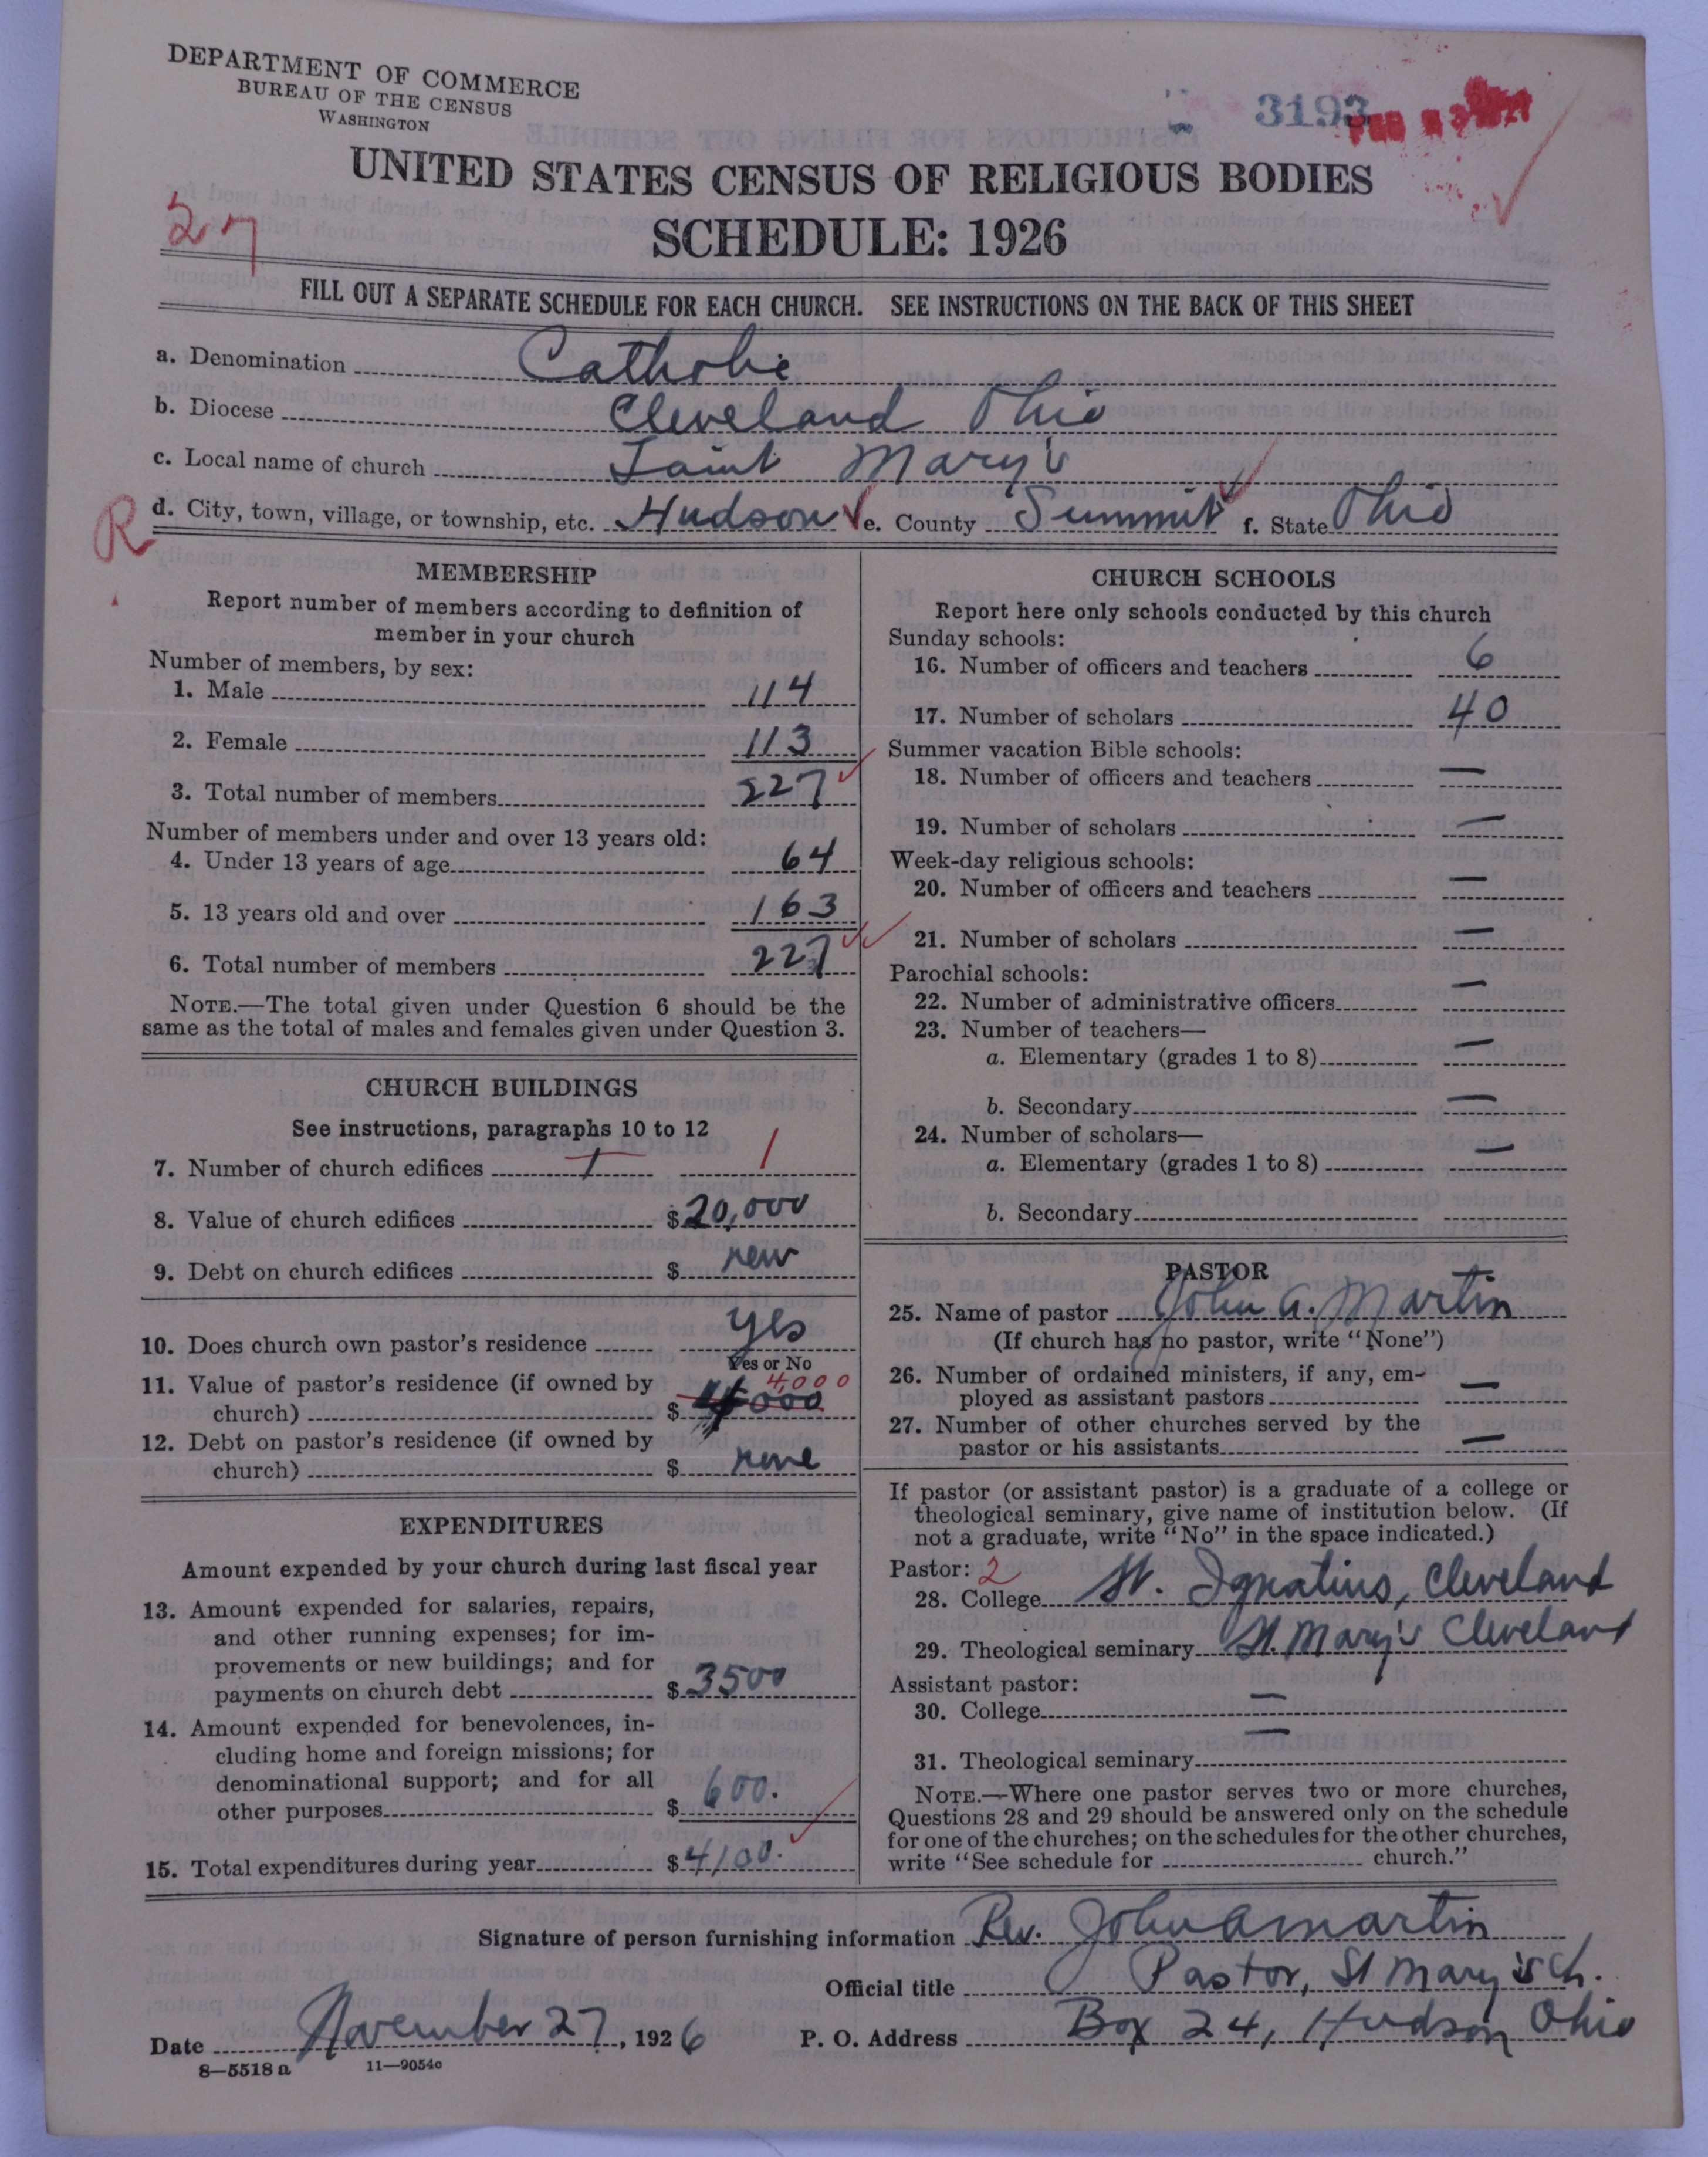 DEPARTMENT OF COMMERCE
BUREAU OF THE CENSUS
WASHINGTON
3193
UNITED STATES CENSUS OF RELIGIOUS BODIES
27
SCHEDULE: 1926
FILL OUT A SEPARATE SCHEDULE FOR EACH CHURCH. SEE INSTRUCTIONS ON THE BACK OF THIS SHEET
a. Denomination Catholic
b. Diocese Cleveland Ohio
c. Local name of church Saint Mary's
R d. City, town, village, or township, etc. Hudson e. County Summit f. State Ohio
MEMBERSHIP
Report number of members according to definition of
member in your church
Number of members, by sex:
1. Male 114
2. Female 113
3. Total number of members 227
Number of members under and over 13 years old:
4. Under 13 years of age 64
5. 13 years old and over 163
6. Total number of members 227
NOTE.—The total given under Question 6 should be the
same as the total of males and females given under Question 3.
CHURCH BUILDINGS
See instructions, paragraphs 10 to 12
7. Number of church edifices 1 1
8. Value of church edifices $20,000
9. Debt on church edifices $
10. Does church own pastor's residence yes
Yes or No
11. Value of pastor's residence (if owned by 4,000
church) $ 4000
12. Debt on pastor's residence (if owned by
church) $ none
EXPENDITURES
Amount expended by your church during last fiscal year
13. Amount expended for salaries, repairs,
and other running expenses; for im-
provements or new buildings; and for
payments on church debt $3500
14. Amount expended for benevolences, in-
cluding home and foreign missions; for
denominational support; and for all
other purposes $600.
15. Total expenditures during year $4100.
CHURCH SCHOOLS
Report here only schools conducted by this church
Sunday schools:
16. Number of officers and teachers 6
17. Number of scholars 40
Summer vacation Bible schools:
18. Number of officers and teachers —
19. Number of scholars —
Week-day religious schools:
20. Number of officers and teachers —
21. Number of scholars —
Parochial schools:
22. Number of administrative officers —
23. Number of teachers—
a. Elementary (grades 1 to 8) —
b. Secondary —
24. Number of scholars—
a. Elementary (grades 1 to 8) —
b. Secondary
PASTOR
25. Name of pastor John A. Martin
(If church has no pastor, write "None")
26. Number of ordained ministers, if any, em-
ployed as assistant pastors —
27. Number of other churches served by the
pastor or his assistants —
If pastor (or assistant pastor) is a graduate of a college or
theological seminary, give name of institution below. (If
not a graduate, write "No" in the space indicated.)
Pastor: 2
28. College St. Ignatius, Cleveland
29. Theological seminary St Mary's Cleveland
Assistant pastor:
30. College —
31. Theological seminary —
NOTE.—Where one pastor serves two or more churches,
Questions 28 and 29 should be answered only on the schedule
for one of the churches; on the schedules for the other churches,
write "See schedule for church."
Signature of person furnishing information Rev. John A Martin
Official title Pastor, St Mary's Ch.
Date November 27, 1926 P. O. Address Box 24, Hudson Ohio
8—5518 a 11—9054c